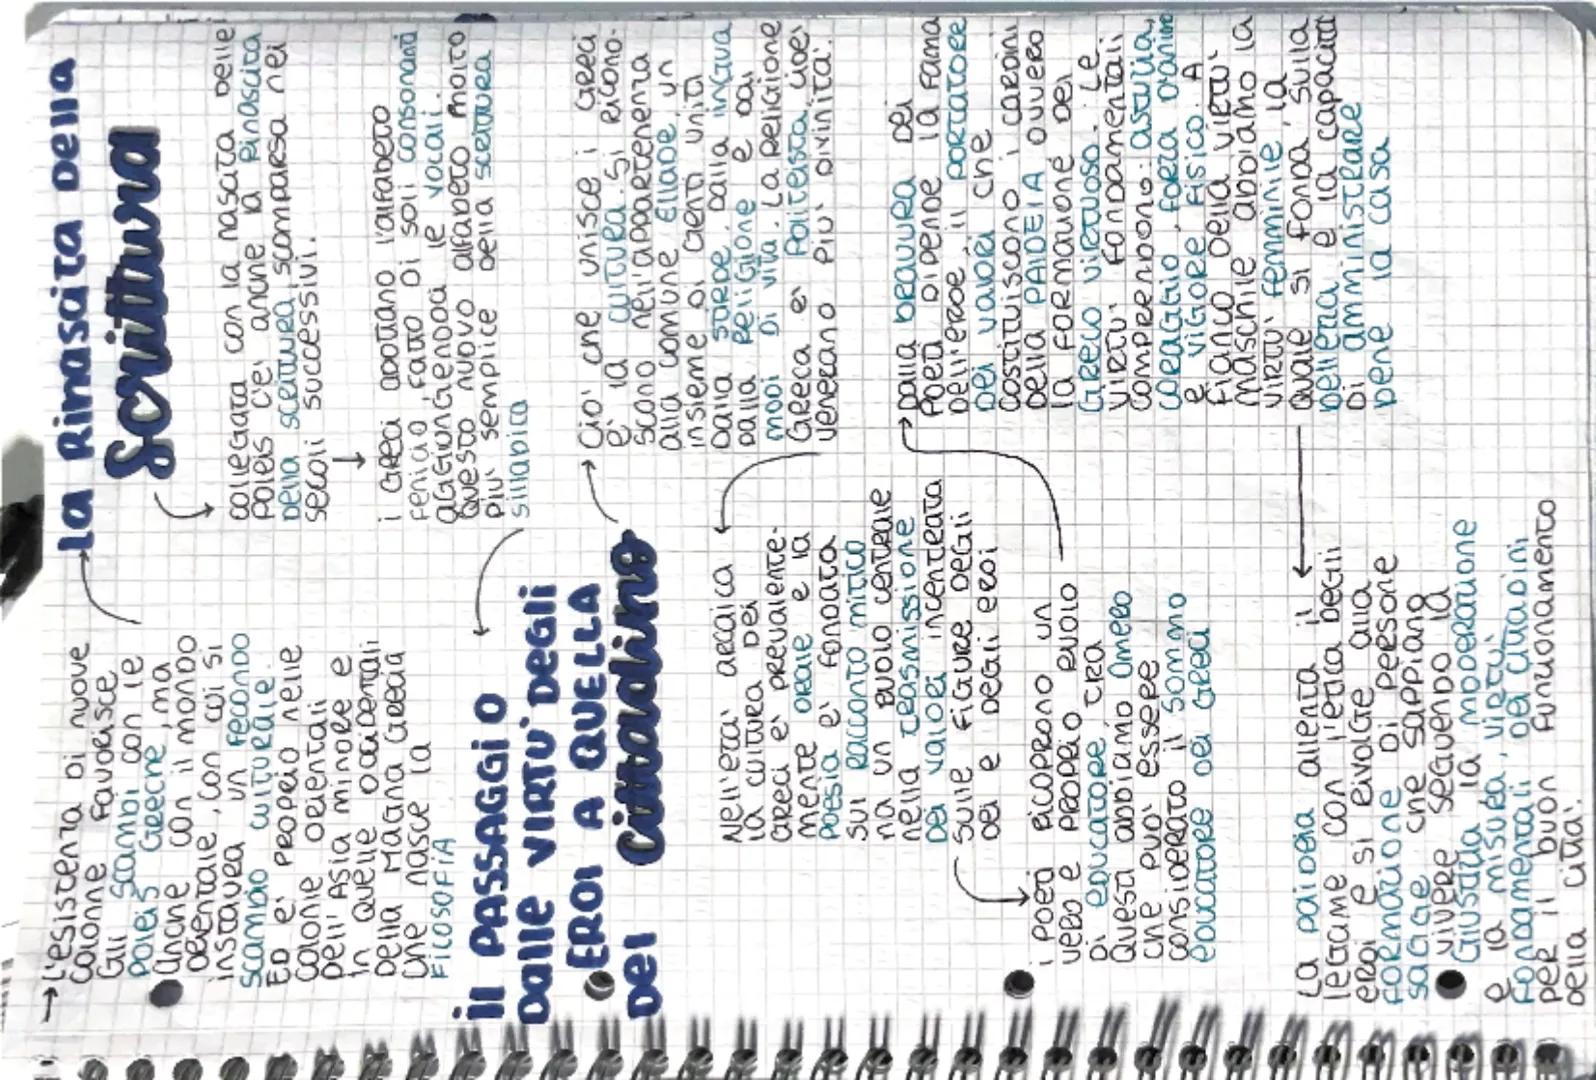 → L'esistenza di nuove
colonne favorisce
gli scambi con le
poleis greche, ma
anche con il mondo
orientale, con cui si
instaura un fecondo
scambio culturale.
Ed e' proprio nelle
colonie orientali
dell'Asia minore e
in quelle occidentali
della Magna Grecia
che nasce la
FILOSOFIA
La Rinascita della
Scrittura
collegata con la nascita delle
poleis c'e' anche la rinascita
della scrittura, scomparsa nei
secoli successivi.
↓
i Greci adottano l'alfabeto
fenicio fatto di soli consonanti
aggiungendoci le vocali.
Questo nuovo alfabeto molto
piu' semplice della scrittura
sillabica
il PASSAGGIO
Dalle VIRTU' DEGLI
EROI A QUELLA
DEI Cittadino
Cio' che unisce i Greci
e' la cultura. Si ricono-
scono nell'appartenenza
alla comune Ellade, un
insieme di Genti unita
dalla stirpe, dalla lingua
dalla religione e dai
modi di vita. La religione
Greca e' politeista cioe'
venerano piu' divinita'.
Nell'eta' arcaica
la cultura dei
Greci e' prevalente-
mente orale e la
poesia e' fondata
sul racconto mitico
ha un ruolo centrale
nella trasmissione
dei valori incentrata
sulle figure degli
dei e degli eroi
i poeti ricoprono un
vero e proprio ruolo
di educatore, tra
questi abbiamo Omero
che puo' essere
considerato il sommo
educatore dei Greci
dalla bravura dei
Poeti dipende la fama
dell'eroe, il portatore
dei valori che
costituiscono i cardini
della PAIDEIA ovvero
la formazione del
Greco virtuoso. Le
virtu' fondamentali
comprendono: astuzia,
coraggio, forza d'animo
e vigore fisico. A
fianco della virtu'
maschile abbiamo la
virtu' femminile, la
quale si fonda sulla
bellezza e la capacita
di amministrare
bene la casa
La paideia allenta il
legame con l'etica degli
eroi e si rivolge alla
formazione di persone
sagge che sappiano
vivere seguendo la
Giustizia la moderazione
e la misura, virtu'
fondamentali dei cittadini
per il buon funzionamento
della citta'.